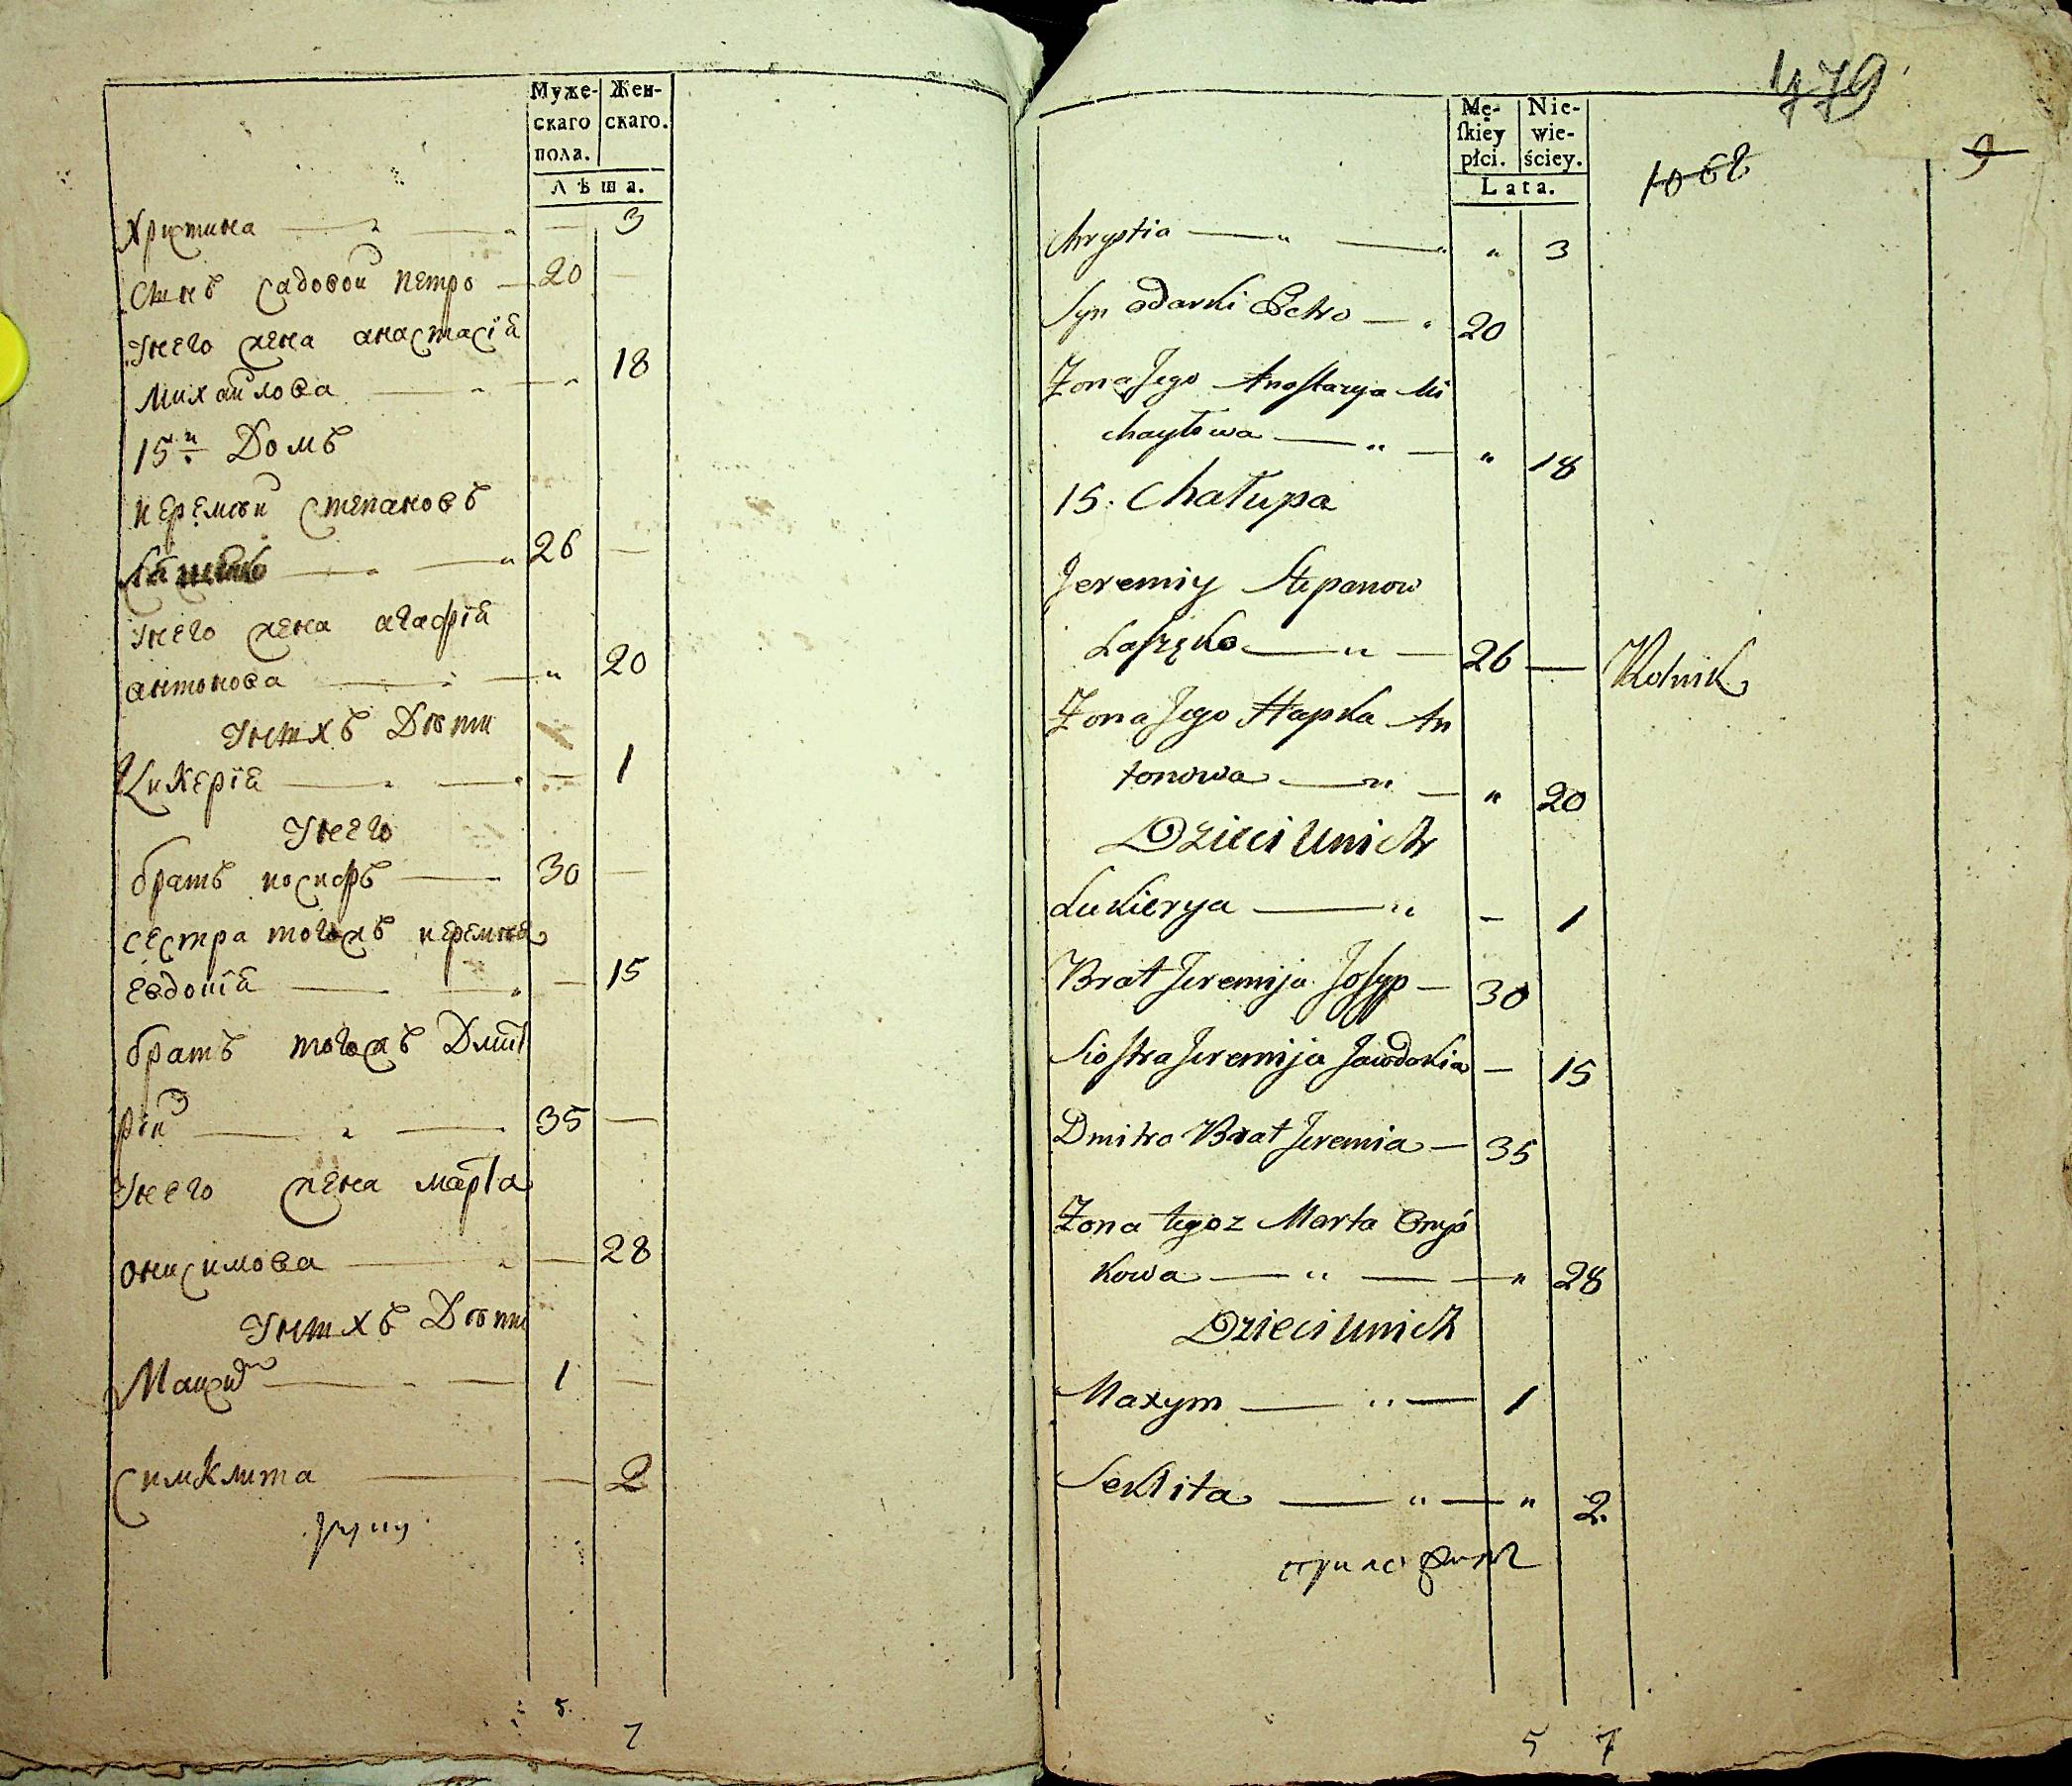 Муже-
скаго
пола.
Жен-
скаго.
Лѣта.
Христина — „ — „ — 3
Сынъ Садовой Петро — 20 —
Унего жена анастасіа
Михайлова — „ — „ 18
15й Домъ
иеремѣй Степановъ
— „ — „ 26 —
Унего жена агафіа
антонова — „ — „ 20
Унихъ Дѣти
Лукеріа — „ — „ — 1
Унего
братъ иосифъ — 30 —
сестра тогожъ иеремѣа
Евдокіа — — „ — 15
братъ тогожъ Дмит
рій — „ — 35 —
Унего жена марта
онисимова — „ — 28
Унихъ Дѣти
Максим — „ — 1 —
Симклита — — 2
5. 7
479
Mę-
ſkiey
płci.
Nie-
wie-
ściey.
Lata.
1062
9
Chrystia — „ — „ „ 3
Syn odarki Petro — „ 20
Zona Jego Anastazya Mi
chayłowa — „ — „ 18
15. Chałupa
Jeremiy Stepanow
Laszęko — „ — 26 — Rolnik
Zona Jego Hapka An
tonowa — „ — „ 20
Dzieci Unich
Lukierya — „ — 1
Brat Jeremija Josyp — 30
Siostra Jeremija Jawdokia — 15
Dmitro Brat Jeremia — 35
Zona tegoz Marta
kowa — „ — — „ 28
Dzieci Unich
Maxym — „ — 1
Seklita — „ — „ 2.
5 7